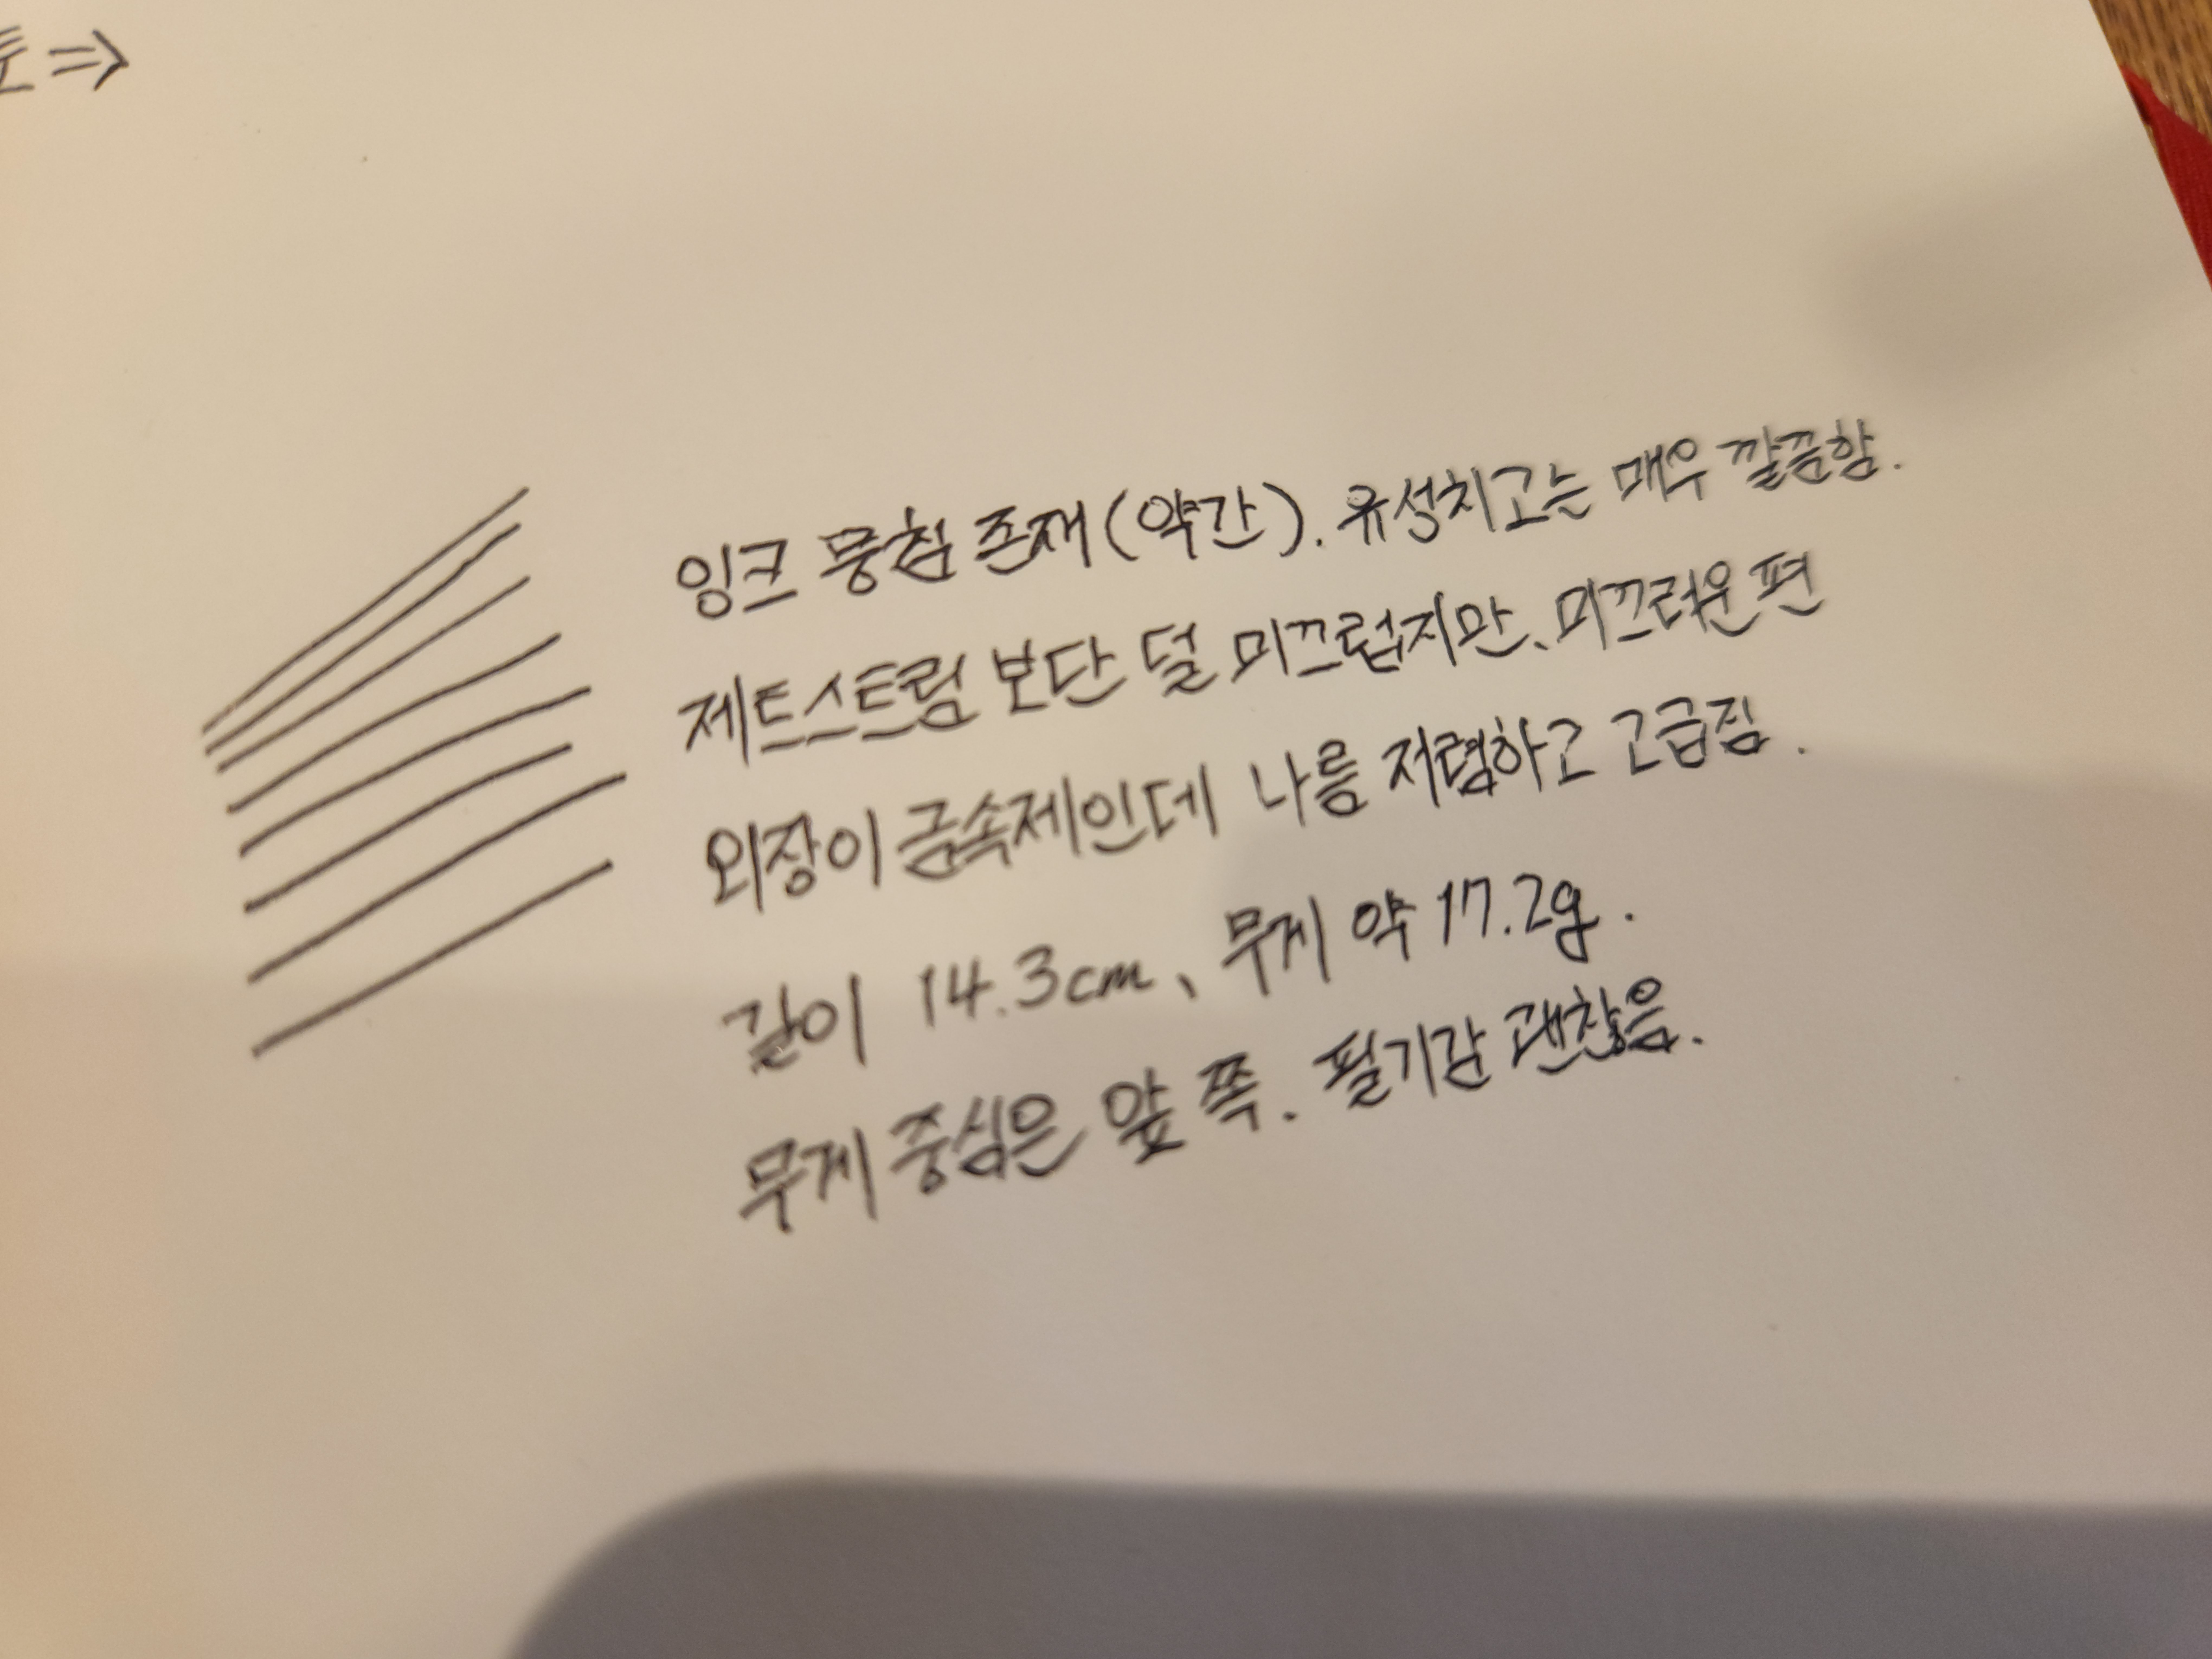 ⇒
잉크 뭉침 존재(약간). 유성치고는 매우 깔끔함.
제트스트림 보단 덜 미끄럽지만、미끄러운 편
외장이 금속제인데 나름 저렴하고 고급짐.
길이 14.3cm、무게 약 17.2g.
무게 중심은 앞 쪽. 필기감 괜찮음.